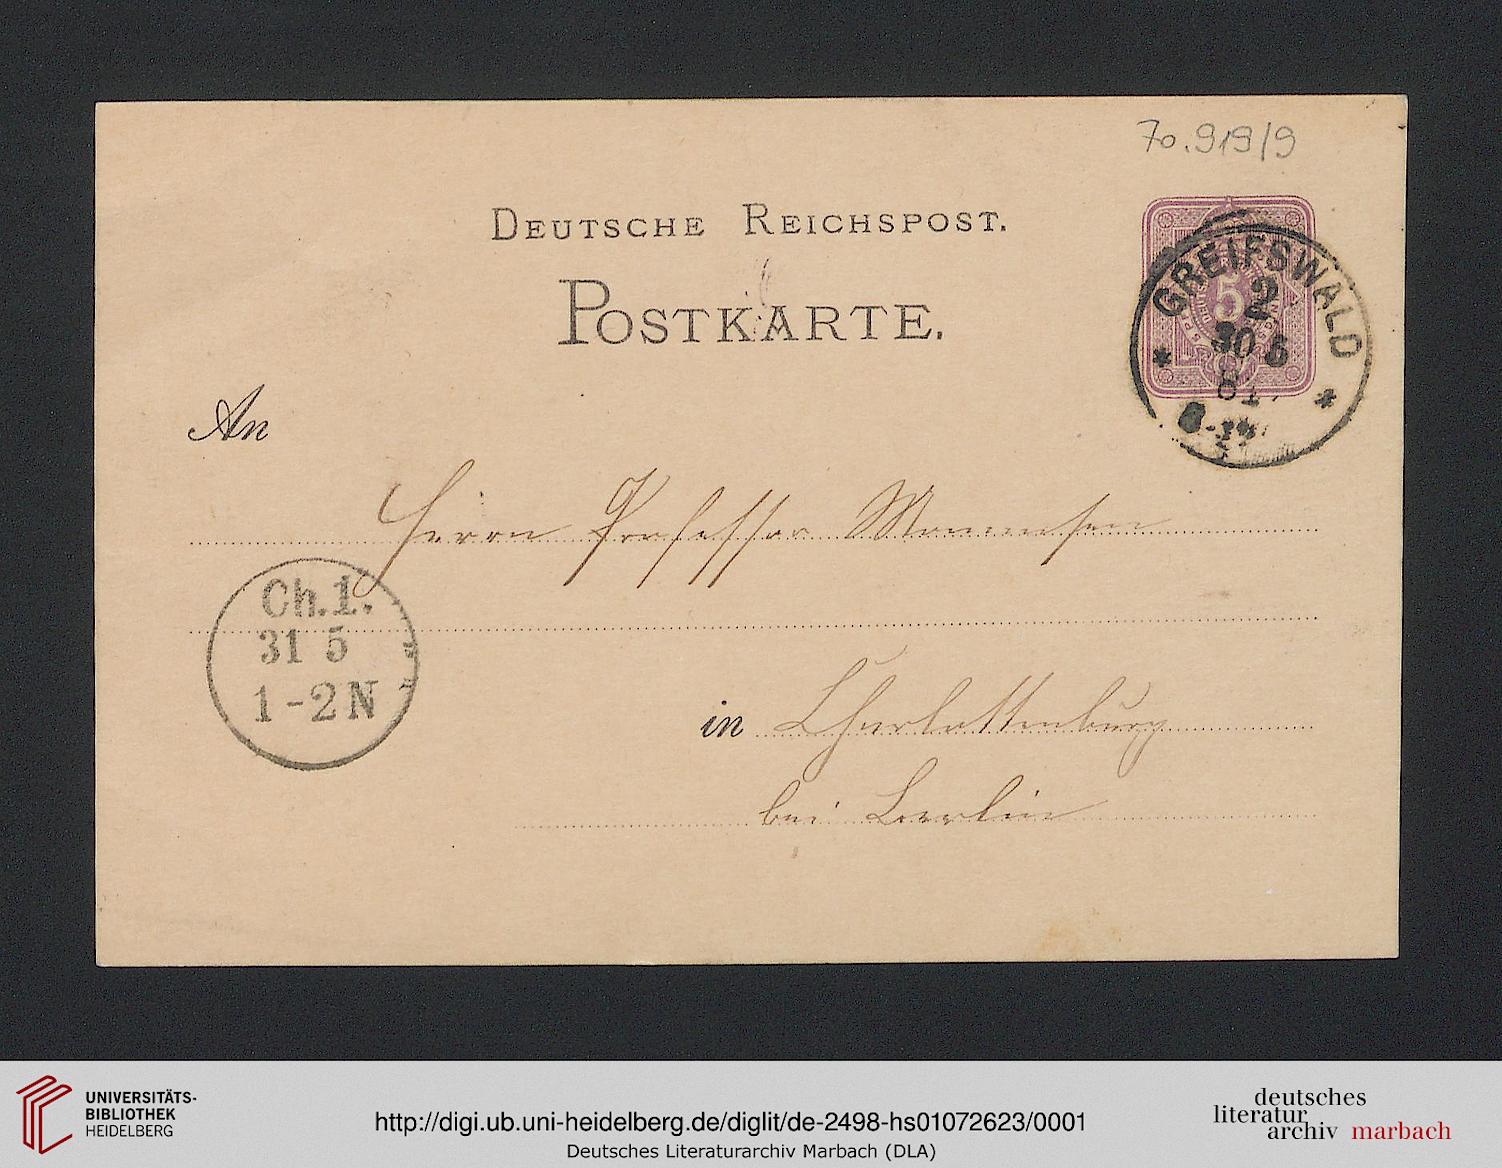 70.919/9
DEUTSCHE REICHSPOST.
POSTKARTE.
GREIFSWALD
2
30 5
An
Herrn Professor Mommsen
Ch.1.
31 5
1-2N
in Charlottenburg
bei Berlin
UNIVERSITÄTS-
BIBLIOTHEK
HEIDELBERG
http://digi.ub.uni-heidelberg.de/diglit/de-2498-hs01072623/0001
Deutsches Literaturarchiv Marbach (DLA)
deutsches
literatur
archiv marbach